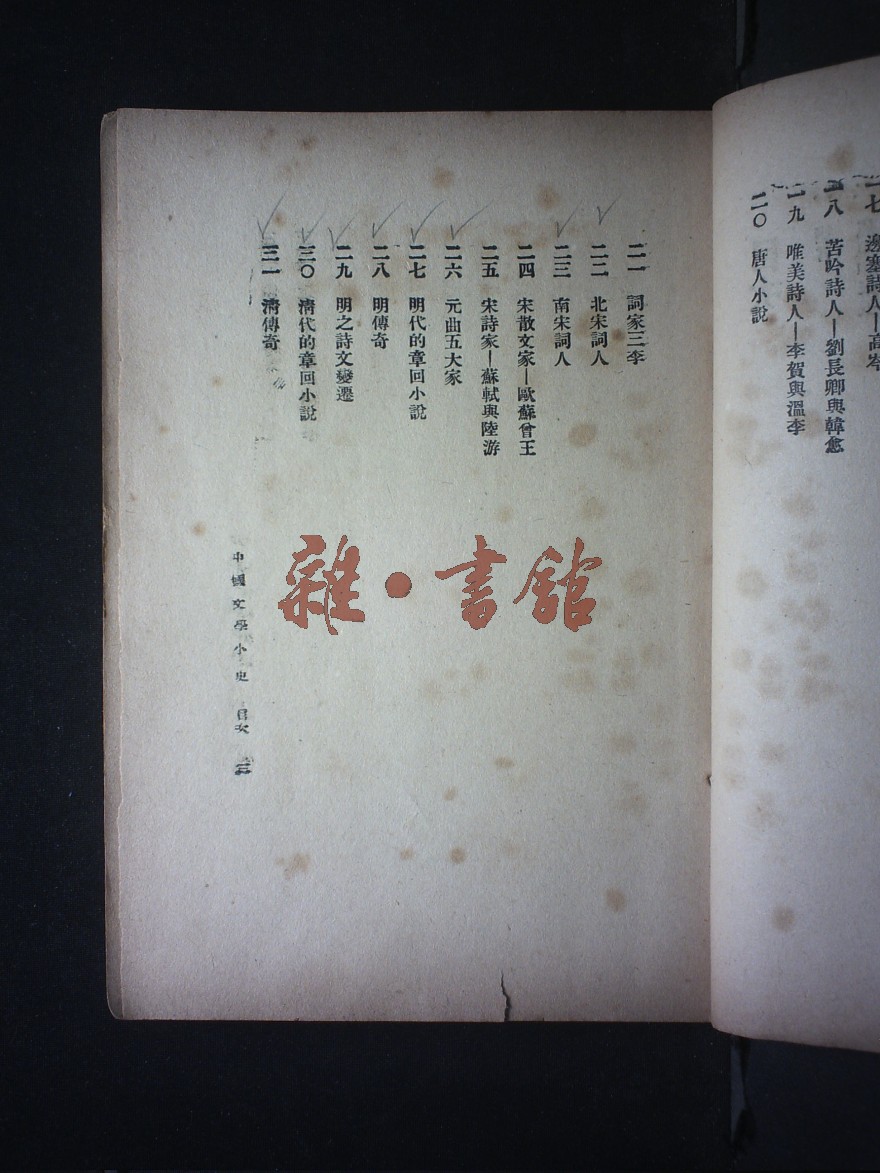 七 邊塞詩人—高岑
八 苦吟詩人—劉長卿與韓愈
一九 唯美詩人—李賀與溫李
二〇 唐人小說
二一 詞家三李
二二 北宋詞人
二三 南宋詞人
二四 宋散文家—歐蘇曾王
二五 宋詩家—蘇軾與陸游
二六 元曲五大家
二七 明代的章回小說
二八 明傳奇
二九 明之詩文變遷
三〇 清代的章回小說
三一 清傳奇
中國文學小史 目次 三
雜·書館